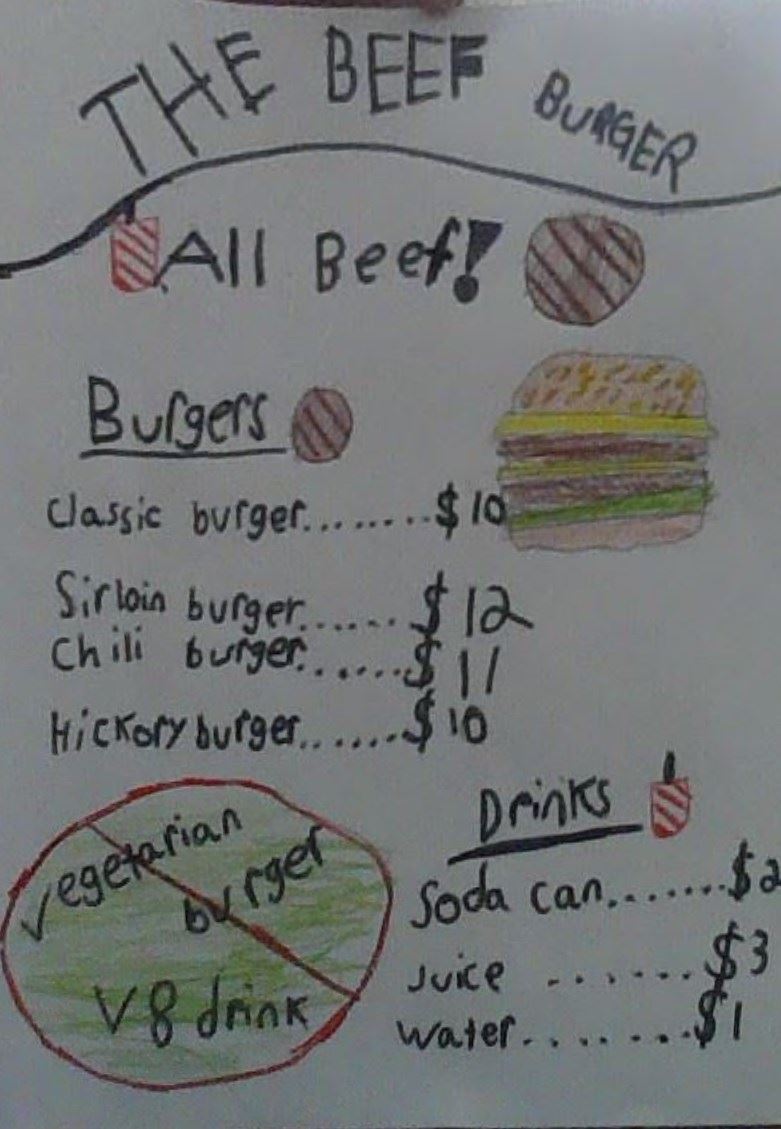 THE BEEF BURGER
All Beef!
Burgers
Classic burger........$10
Sirloin burger......$12
Chili burger.......$11
Hickory burger.......$10
Vegetarian
burger
V8 drink
Drinks
Soda can.......$2
Juice .......$3
Water........$1